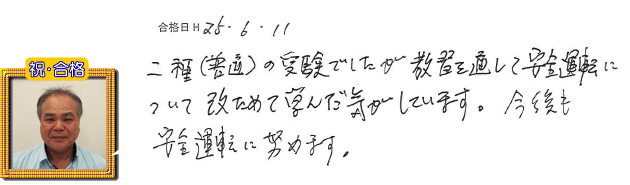 合格日 H 25・6・11
祝・合格
二種(普通)の受験でしたが教習を通して安全運転に
ついて改ためて学んだ気がしています。今後も
安全運転に努めます。